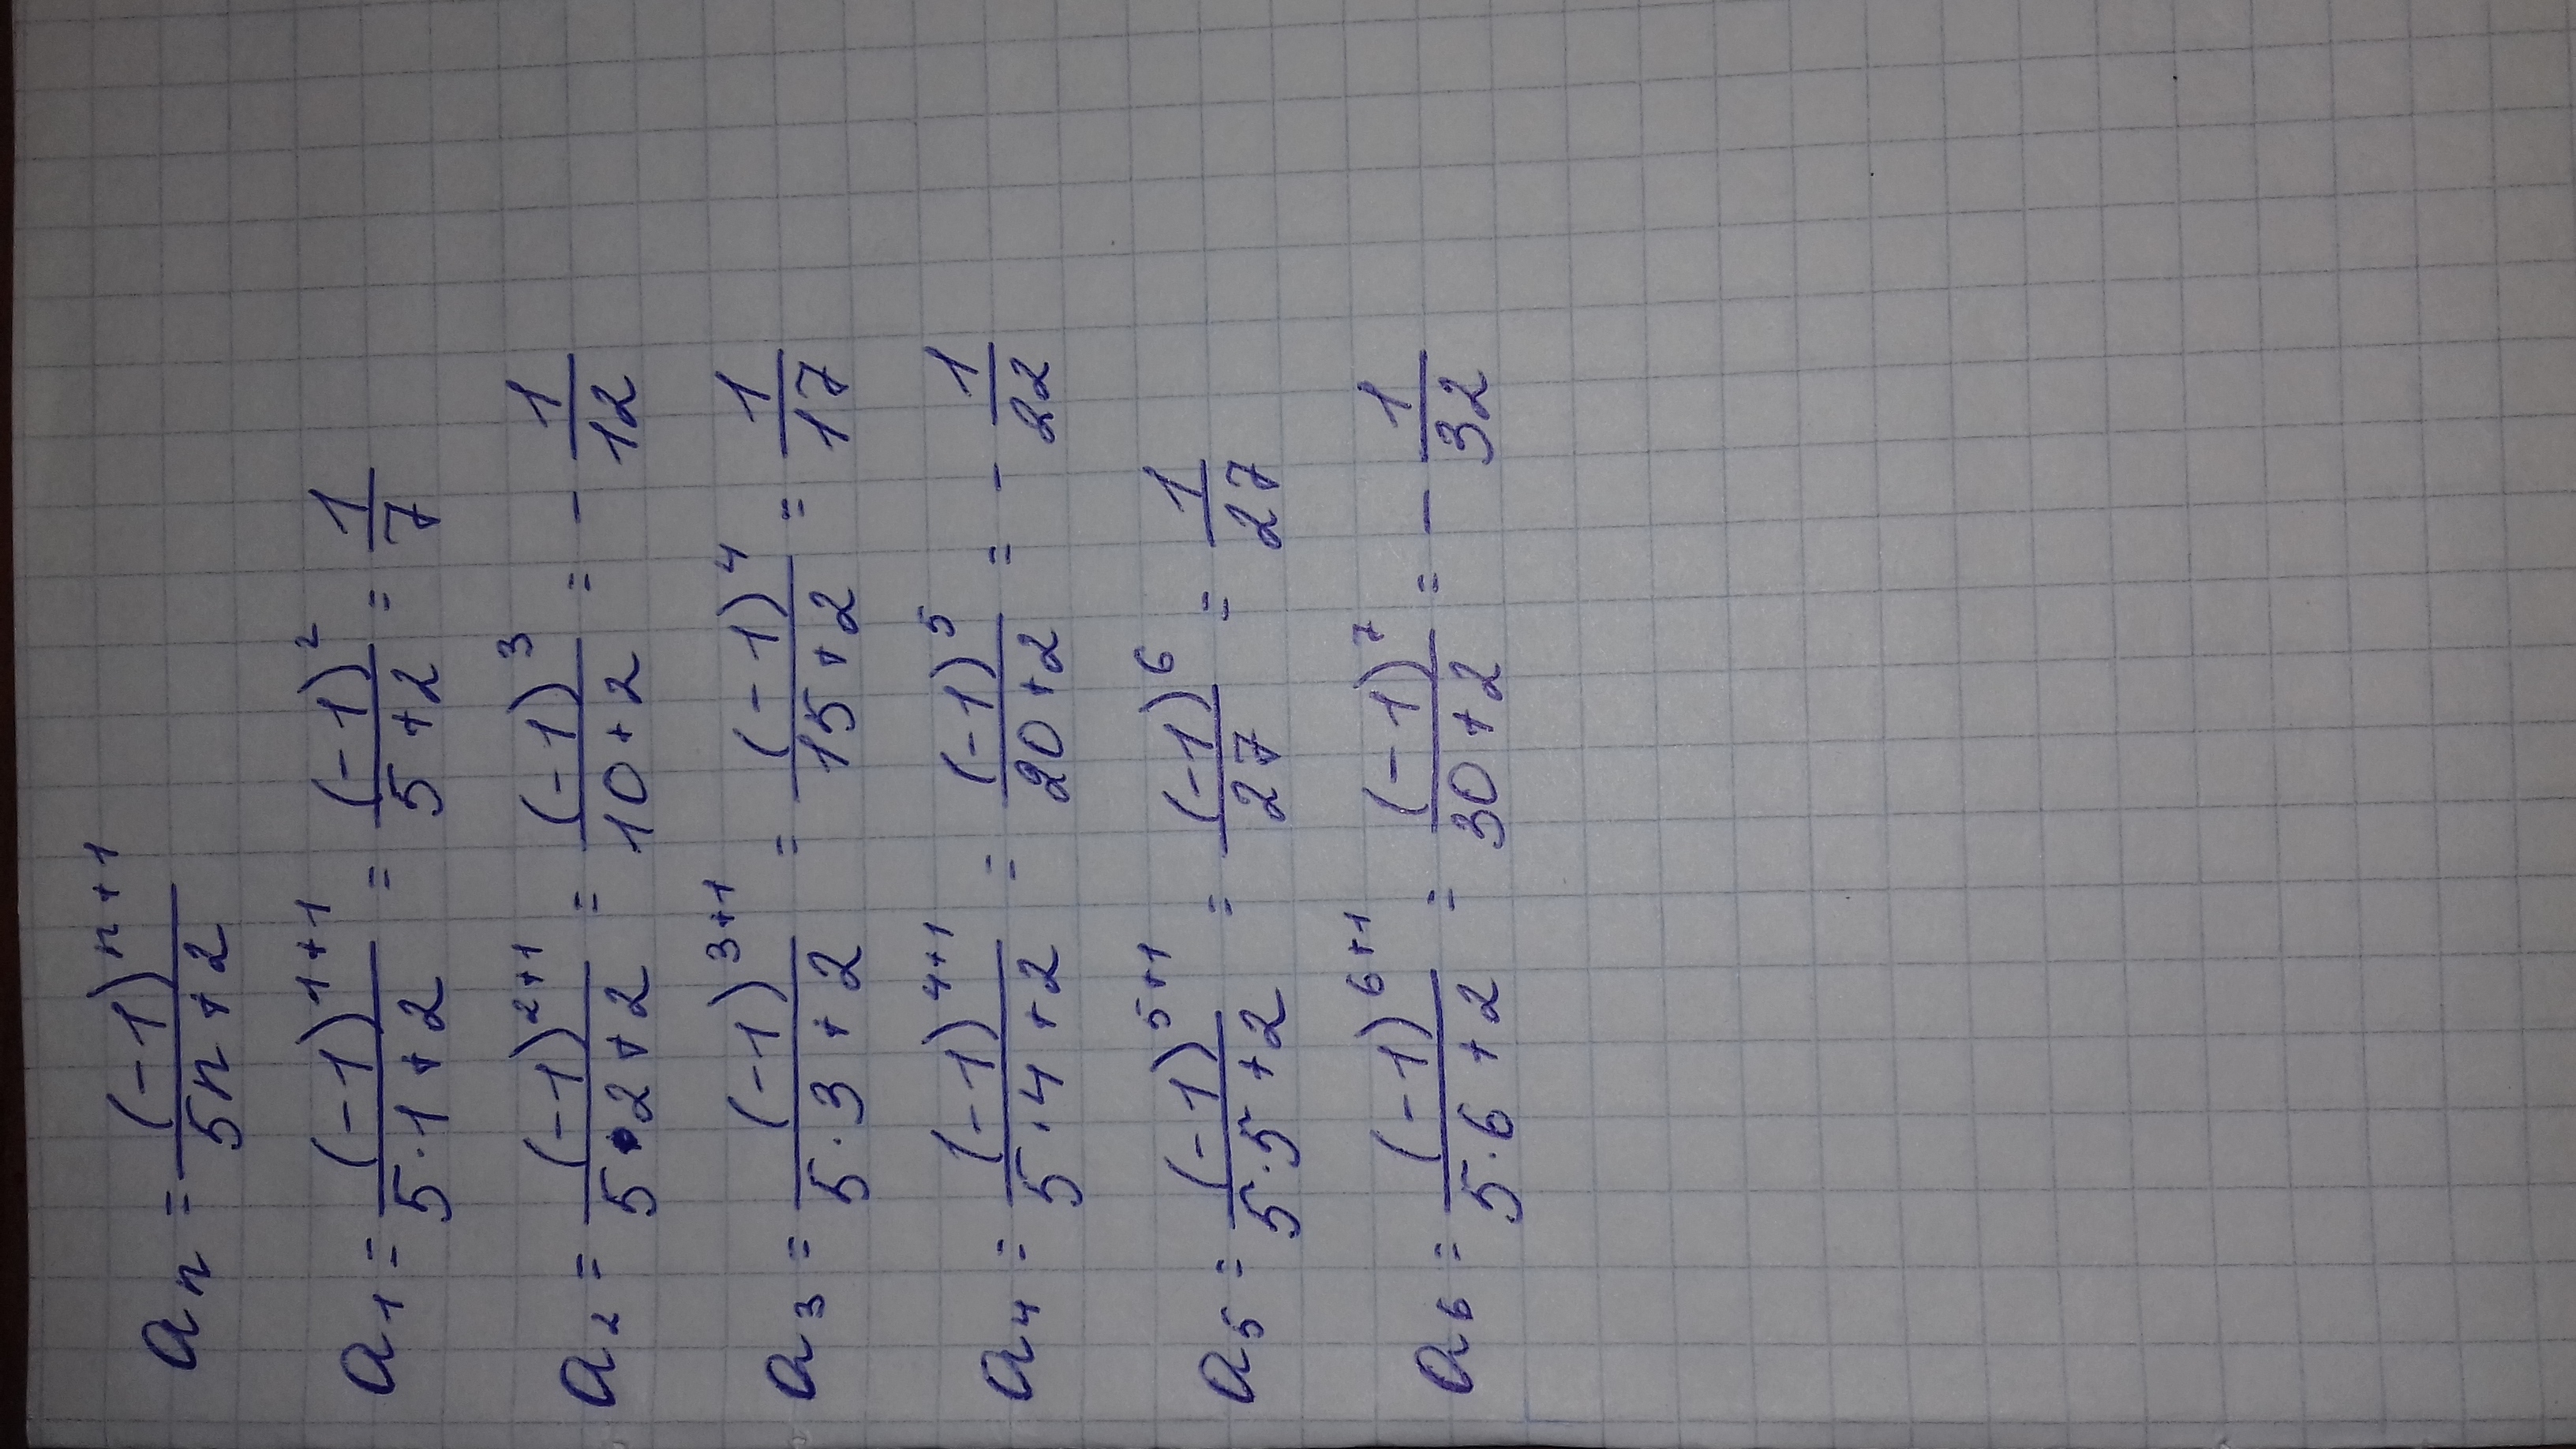 aₙ = (-1)ⁿ⁺¹ / 5n+2
a₁ = (-1)¹⁺¹ / 5·1+2 = (-1)² / 5+2 = 1/7
a₂ = (-1)²⁺¹ / 5·2+2 = (-1)³ / 10+2 = - 1/12
a₃ = (-1)³⁺¹ / 5·3+2 = (-1)⁴ / 15+2 = 1/17
a₄ = (-1)⁴⁺¹ / 5·4+2 = (-1)⁵ / 20+2 = - 1/22
a₅ = (-1)⁵⁺¹ / 5·5+2 = (-1)⁶ / 27 = 1/27
a₆ = (-1)⁶⁺¹ / 5·6+2 = (-1)⁷ / 30+2 = - 1/32